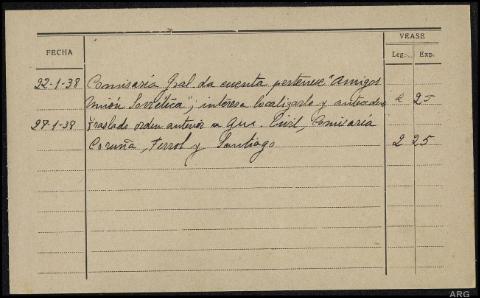 VEASE
FECHA
Leg. Exp.
22-1-38 Comisaría Gral. da cuenta pertenece "Amigos
Unión Soviética", interesa localizarlo y 2 25
27-1-38 Traslado orden anterior a Gua. Civil, Comisaría
Coruña, Ferrol y Santiago 2 25
ARG